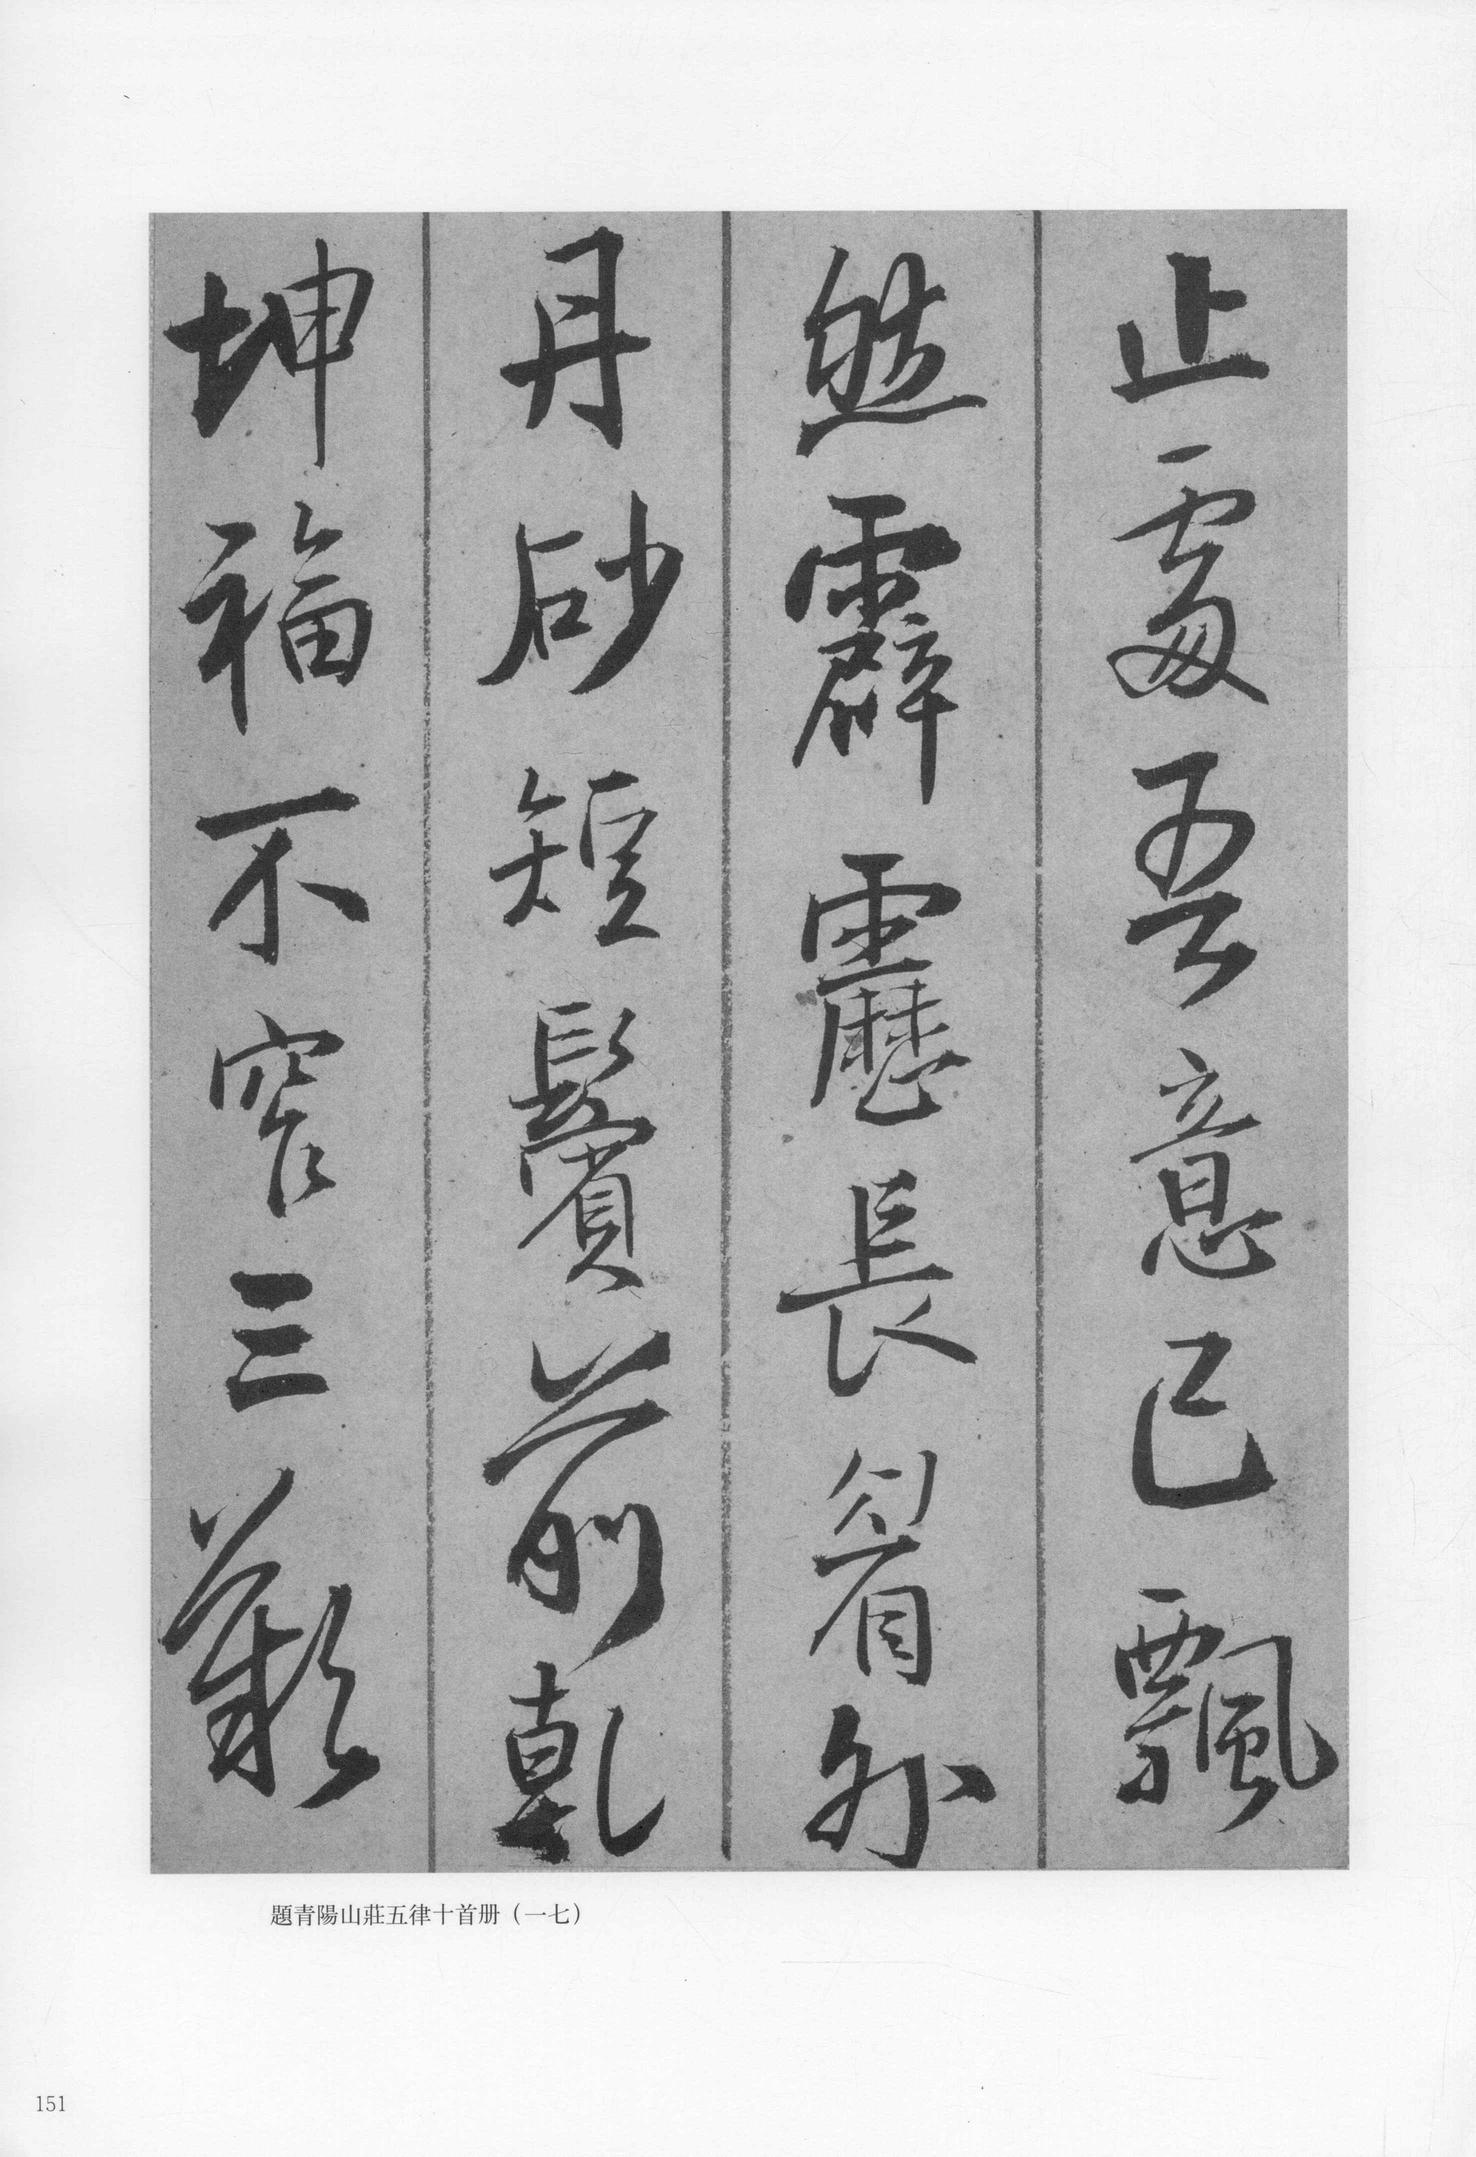 止處吾意已飄
然霹靂長眉外
丹砂短鬢前乾
坤福不窄三歎
題青陽山莊五律十首册（一七）
151